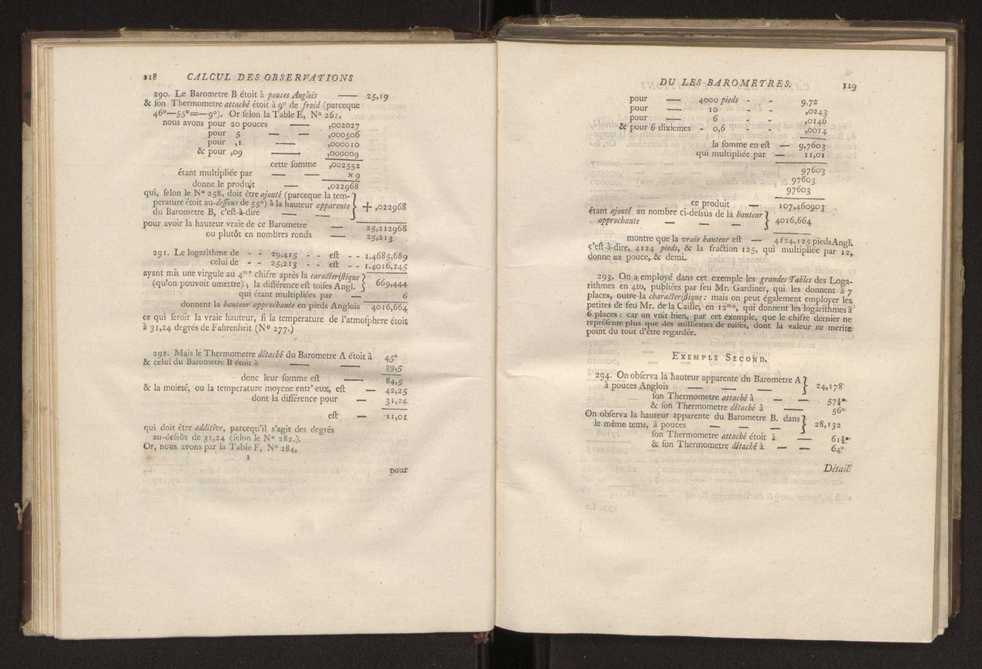 218 CALCUL DES OBSERVATIONS
290. Le Barometre B étoit à pouces Anglois — 25,19
& son Thermometre attaché étoit à 9° de froid (parceque
46°—55°=—9°). Or selon la Table E, N° 261,
nous avons pour 20 pouces — ,002027
pour 5 — — ,000506
pour ,1 — ,000010
& pour ,09 — ,000009
cette somme ,002552
étant multipliée par — — ×9
donne le produit — ,022968
qui, selon le N° 258, doit être ajouté (parceque la tem-
perature étoit au-dessous de 55°) à la hauteur apparente } + ,022968
du Barometre B, c'est-à-dire — —
pour avoir la hauteur vraie de ce Barometre — 25,212968
ou plutôt en nombres ronds — 25,213
291. Le logarithme de - - 29,415 - - est - - 1.4685,689
celui de - - 25,213 - - est - - 1.4016,245
ayant mis une virgule au 4me chifre après la caracteristique }
(qu'on pouvoit omettre); la différence est toises Angl. } 669,444
qui étant multipliées par — 6
donnent la hauteur approchante en pieds Anglois 4016,664
ce qui seroit la vraie hauteur, si la temperature de l'atmosphere étoit
à 31,24 degrés de Fahrenheit (N° 277.)
292. Mais le Thermometre détaché du Barometre A étoit à 45°
& celui du Barometre B étoit à — — 39,5
donc leur somme est — 84,5
& la moitié, ou la temperature moyene entr' eux, est — 42,25
dont la différence pour — 31,24
est — 11,01
qui doit être additive, parcequ'il s'agit des degrés
au-dessus de 31,24 (selon le N° 282.).
Or, nous avons par la Table F, N° 284,
pour
DU LES BAROMETRES. 219
pour — 4000 pieds - - 9,72
pour — 10 - - ,0243
pour — 6 - - ,0146
& pour 6 dixiemes - 0,6 - - ,0014
la somme en est — 9,7603
qui multipliée par — 11,01
97603
97603
97603
ce produit — 107,460903
étant ajouté au nombre ci-dessus de la hauteur }
approchante — — — } 4016,664
montre que la vraie hauteur est — 4124,125 pieds Angl.
c'est-à-dire, 4124 pieds, & la fraction 125, qui multipliée par 12,
donne un pouce, & demi.
293. On a employé dans cet exemple les grandes Tables des Loga-
rithmes en 4to, publiées par feu Mr. Gardiner, qui les donnent à 7
places, outre la characteristique: mais on peut également employer les
petites de feu Mr. de la Caille, en 12mo, qui donnent les logarithmes à
6 places: car on voit bien, par cet exemple, que le chifre dernier ne
représente plus que des milliemes de toises, dont la valeur ne merite
point du tout d'être regardée.
EXEMPLE SECOND.
294. On observa la hauteur apparente du Barometre A }
à pouces Anglois — — } 24,178
son Thermometre attaché à — — 57¼°
& son Thermometre détaché à — 56°
On observa la hauteur apparente du Barometre B. dans }
le même tems, à pouces — — } 28,132
son Thermometre attaché étoit à — 61¾°
& son Thermometre détaché à — — 64°
Détail